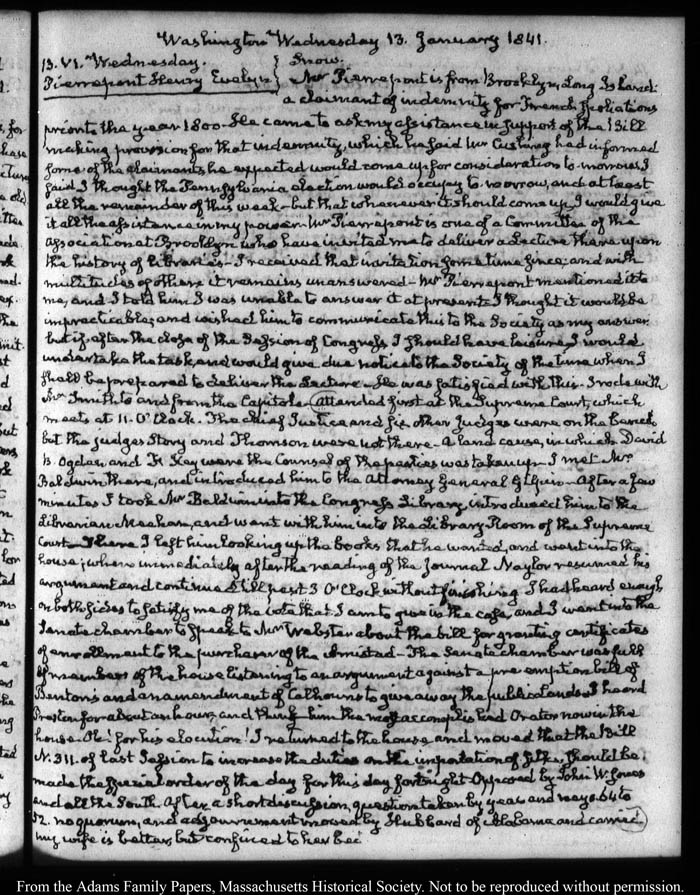 Washington Wednesday 13. January 1841.
13. VI. Wednesday. Snow.
Pierrepont Henry Evelyn Mr Pierrepont is from Brooklyn, Long Island:
a claimant of indemnity for French Spoliations
prior to the year 1800. He came to ask my assistance in support of the Bill
making provision for that indemnity, which he said Mr Cushing had informed
some of the claimants he expected would come up for consideration to-morrow. I
said I thought the Pennsylvania election would occupy to-morrow, and at least
all the remainder of this week—but that whenever it should come up, I would give
it all the assistance in my power. Mr Pierrepont is one of a Committee of the
Association at Brooklyn who have invited me to deliver a Lecture there upon
the history of libraries—I received that invitation some time since; and with
multitudes of others it remains unanswered—Mr Pierrepont mentioned it to
me, and I told him I was unable to answer it at present. I thought it would be
impracticable; and wished him to communicate this to the Society as my answer
but if after the close of the Session of Congress I should have leisure, I would
undertake the task, and would give due notice to the Society of the time when I
shall be prepared to deliver the Lecture. He was satisfied with this. I rode with
Mr Smith to and from the Capitol. Attended first at the Supreme Court, which
meets at 11. O'Clock. The Chief Justice and six other Judges were on the bench
but the Judges Story and Thomson were not there. A land cause, in which David
B. Ogden and F. Key were the Counsel of the parties was taken up—I met Mr
Baldwin there, and introduced him to the Attorney General Gilpin—After a few
minutes I took Mr Baldwin into the Congress Library, introduced him to the
Librarian Meehan, and went with him into the Library Room of the Supreme
Court—There I left him looking up the books that he wanted, and went into the
house; where immediately after the reading of the Journal Naylor resumed his
argument and continued till past 3 O'Clock without finishing. I had heard enough
on both sides to satisfy me of the vote that I am to give in the case, and I went into the
Senate chamber to speak to Mr Webster about the bill for granting certificates
of enrollment to the purchaser of the Amistad—The Senate chamber was full
of members of the house listening to an argument against a pre-emption bill of
Benton's and an amendment of Calhoun's to give away the public lands. I heard
Preston for about an hour, and think him the most accomplished Orator now in the
house. Oh! for his elocution! I returned to the house, and moved that the Bill
N. 311. of last Session to increase the duties on the importation of silks, should be
made the special order of the day for this day fortnight. Opposed by John W. Jones
and all the South. After a short discussion, question taken by yeas and nays. 64 to
52. no quorum, and adjournment moved by Hubbard of Alabama and carried
my wife is better but confined to her bed
From the Adams Family Papers, Massachusetts Historical Society. Not to be reproduced without permission.